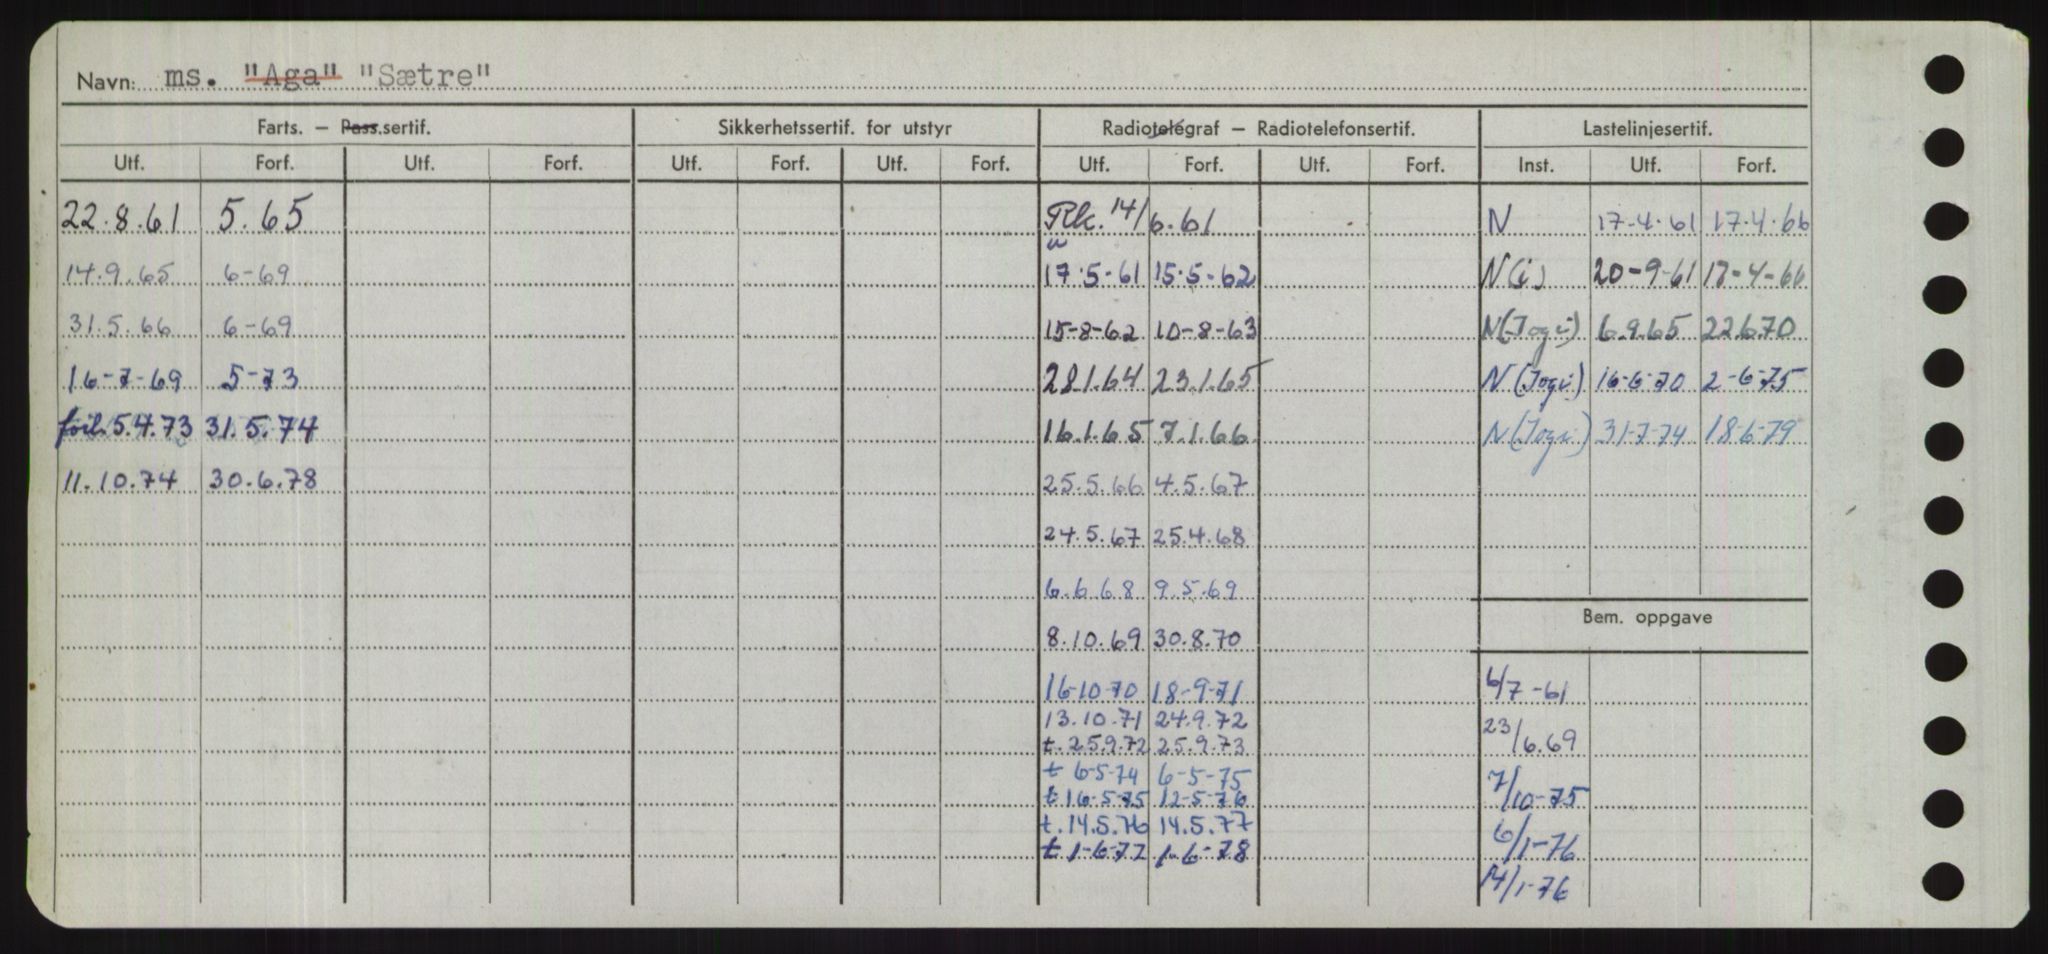 Navn: ms. "Aga" "Sætre"
Farts. — Pass.sertif. Sikkerhetssertif. for utstyr Radiotelegraf — Radiotelefonsertif. Lastelinjesertif.
Utf. Forf. Utf. Forf. Utf. Forf. Utf. Forf. Utf. Forf. Utf. Forf. Inst. Utf. Forf.
22.8.61 5.65 Rk. 14/6.61 N 17-4-61 17.4.66
14.9.65 6-69 17.5-61 15.5-62 N(i) 20-9-61 17-4-66
31.5.66 6-69 15-8-62 10-8-63 N(Jogi) 6.9.65 22.6.70
16-7-69 5-73 28.1.64 23.1.65 N(Jogi) 16-6-70 2-6-75
forl. 5.4.73 31.5.74 16.1.65 7.1.66 N(Jogi) 31-7-74 18-6-79
11.10.74 30.6.78 25.5.66 4.5.67
24.5.67 25.4.68
6.6.68 9.5.69
Bem. oppgave
8.10.69 30.8.70
16-10-70 18-9-71 6/7-61
13.10.71 24.9.72
t. 25.9.72 25.9.73 23/6.69
t 6-5-74 6-5-75
t 16-5-75 12-5-76 7/10-75
t. 14.5.76 14.5.77
t 1-6-77 1-6-78 6/1-76
14/1-76